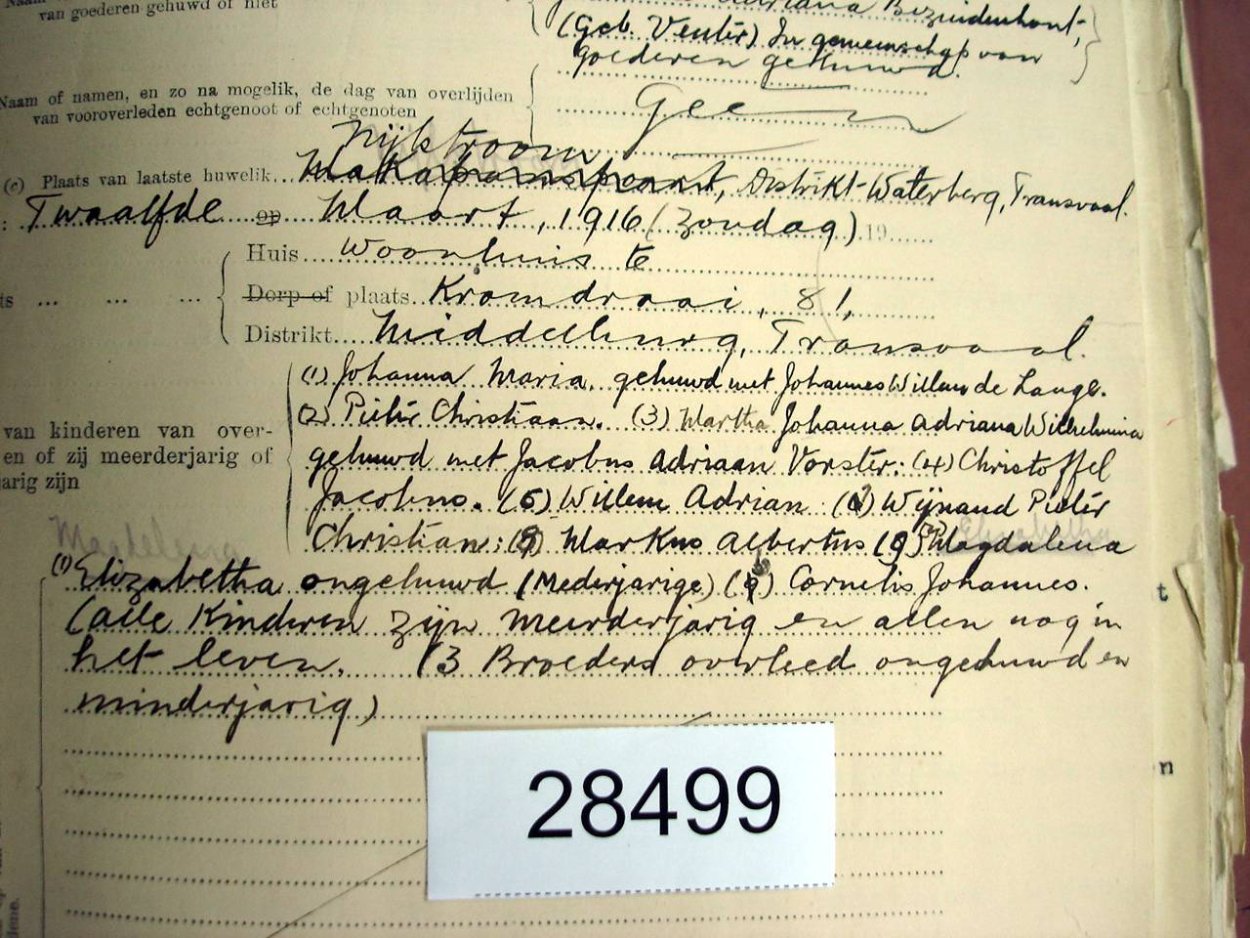 van goederen gehuwd of niet
Adriana Bezuidenhout,
(Geb. Venter) In gemeenschap van
goederen gehuwd.
Naam of namen, en zo na mogelik, de dag van overlijden
van vooroverleden echtgenoot of echtgenoten
Geen
Nijlstroom
(e) Plaats van laatste huwelik Makapanspoort, Distrikt Waterberg, Transvaal.
: Twaalfde op Maart, 1916 (Zondag) 19
Huis Woonhuis te
ts ... ... ... Dorp of plaats Kromdraai, 81,
Distrikt Middelburg, Transvaal.
(1) Johanna Maria, gehuwd met Johannes Willem de Lange.
(2) Pieter Christiaan. (3) Martha Johanna Adriana Wilhelmina
van kinderen van over-
gehuwd met Jacobus Adriaan Vorster: (4) Christoffel
en of zij meerderjarig of
Jacobus. (5) Willem Adrian (6) Wijnand Pieter
arig zijn
Christian: (8) Markus Albertus (9) Magdalena
Elizabetha ongehuwd (Mederjarige) (9) Cornelis Johannes.
(alle Kinderen zijn meerderjarig en allen nog in
het leven. (3 Broeders overleed ongehuwd en
minderjarig)
28499
t
n